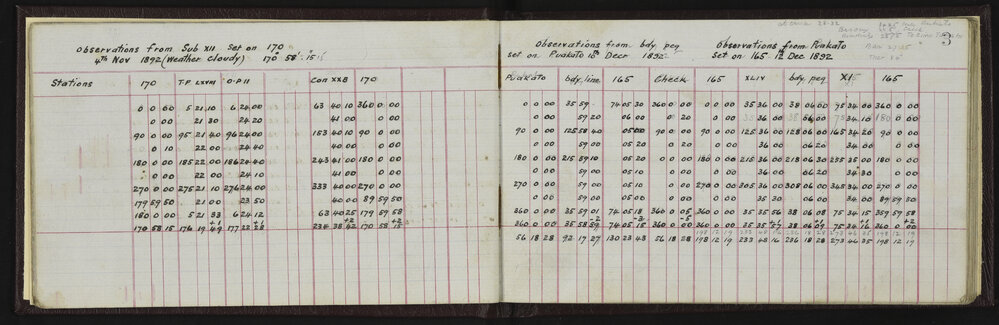 Observations from Sub XII Set on 170
4th Nov 1892 (Weather Cloudy) 170° 58' 15"
Stations 170 T.P LXVIII O.P 11 Con XXB 170
0 0 00 5 21 10 6 24 00 63 40 10 360 0 00
0 00 21 30 24 20 41 00 0 00
90 0 00 95 21 40 96 24 00 153 40 10 90 0 00
0 10 22 00 24 40 40 00 0 00
180 0 00 185 22 00 186 24 40 243 41 00 180 0 00
0 00 22 00 24 10 41 00 0 00
270 0 00 275 21 10 276 24 00 333 40 00 270 0 00
179 59 50 21 00 23 50 40 00 89 59 50
180 0 00 5 21 33 6 24 12 63 40 25 179 59 58
+1 +1 +2 +2
170 58 15 176 19 49 177 22 28 234 38 42 170 58 15
3
Observations from bdy peg
set on Puakato 10th Decr 1892
Observations from Puakato
Set on 165 12th Dec 1892
Puakato bdy, line 165 Check 165 XLIV bdy. peg XI 165
0 0 00 35 59 74 05 30 360 0 00 0 0 00 35 36 00 38 06 00 75 34 00 360 0 00
0 00 59 20 06 00 0 20 0 00 35 36 00 38 06 00 75 34 10 180 0 00
90 0 00 125 58 40 05 00 90 0 00 90 0 00 125 36 00 128 06 00 165 34 20 90 0 00
0 00 59 00 05 20 0 20 0 00 36 00 06 20 34 00 0 00
180 0 00 215 59 10 05 20 0 00 180 0 00 215 36 00 218 06 30 255 35 00 180 0 00
0 00 59 00 05 10 0 00 0 00 36 00 06 20 34 30 0 00
270 0 00 59 00 05 10 0 00 270 0 00 305 36 00 308 06 00 345 34 00 270 0 00
0 00 59 00 05 00 0 00 0 00 35 30 06 00 34 00 89 59 50
360 0 00 35 59 01 74 05 18 360 0 05 360 0 00 35 35 56 38 06 08 75 34 15 359 59 58
-2 -3 -5 +1 +1 +1 +2
360 0 00 35 58 59 74 05 15 360 0 00 360 0 00 35 35 57 38 06 09 75 34 16 360 0 00
198 12 19 233 48 16 236 18 28 273 46 35 198 12 19
56 18 28 92 17 27 130 23 43 56 18 28 198 12 19 233 48 16 236 18 28 273 46 35 198 12 19